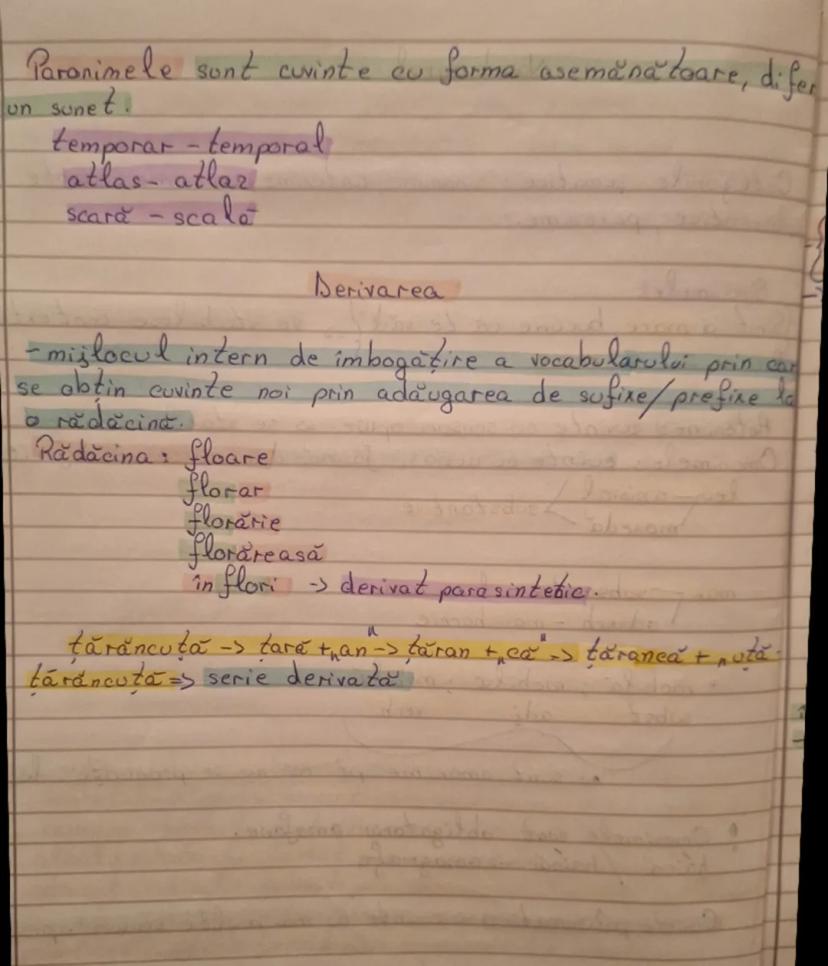 Paronimele sunt cuvinte cu forma asemănătoare, difer
un sunet.
temporar - temporal
atlas - atlaz
scară - scală
Derivarea
- mijlocul intern de îmbogățire a vocabularului prin car
se obțin cuvinte noi prin adăugarea de sufixe/prefixe la
o rădăcină.
Rădăcina: floare
florar
florărie
florăreasă
înflori -> derivat parasintetic.
țărăncuță -> țară + „an" -> țăran + „că" => țărancă + „uță
țărăncuță => serie derivată